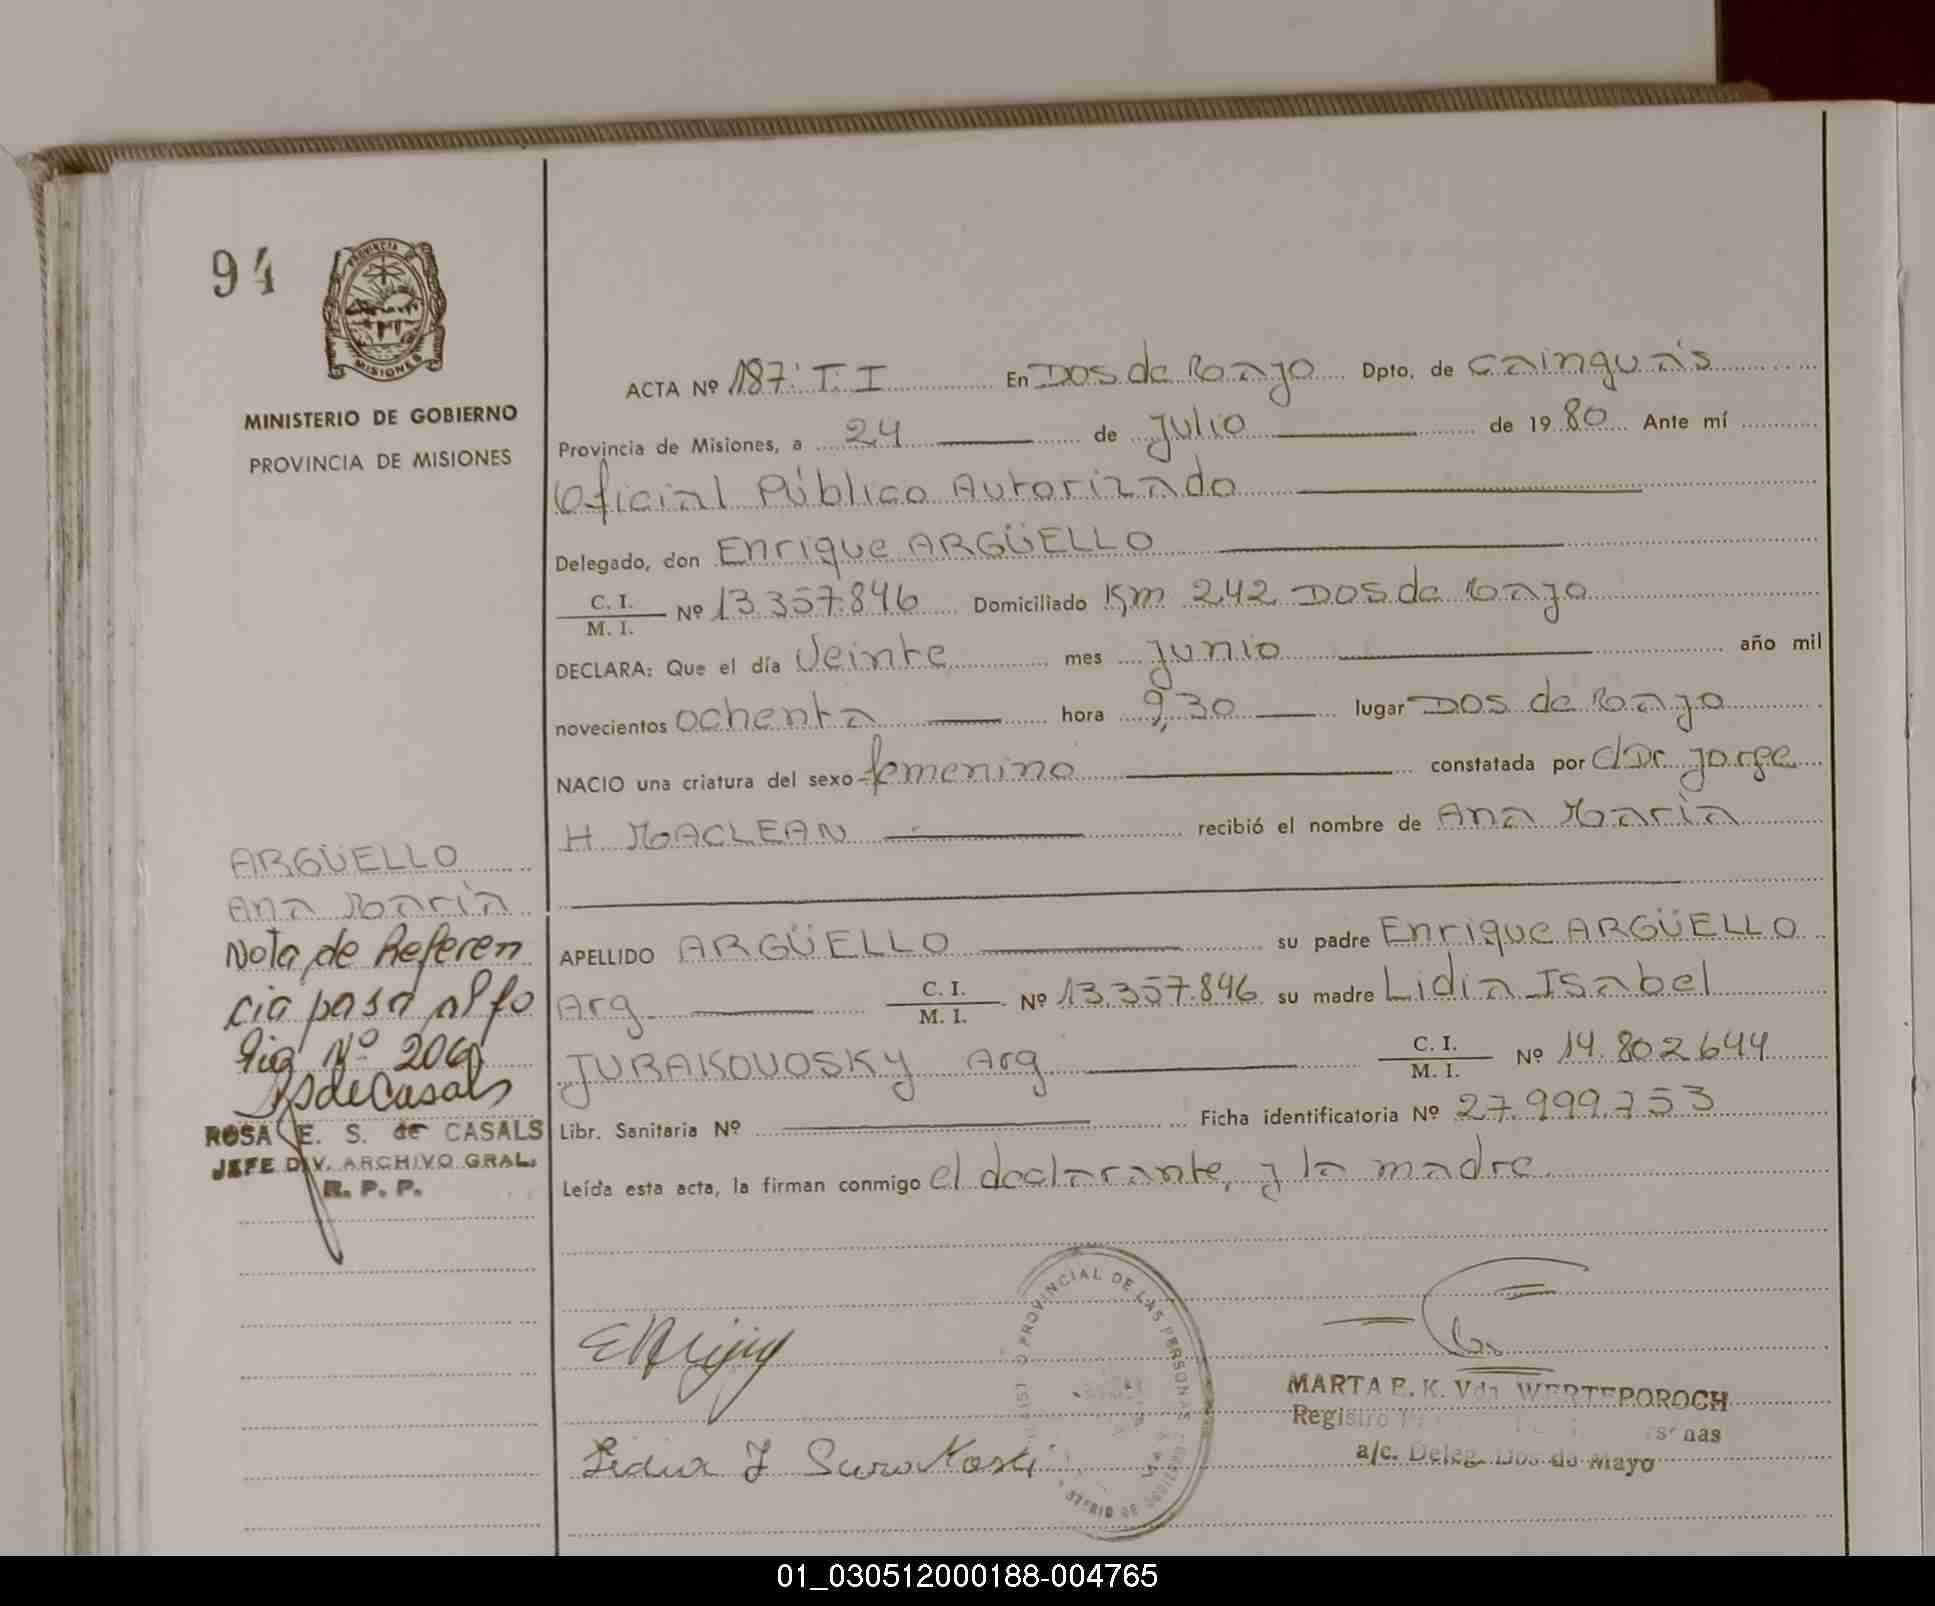 94
PROVINCIA
MISIONES
MINISTERIO DE GOBIERNO
PROVINCIA DE MISIONES
ACTA Nº 187 T. I En Dos de Mayo Dpto. de Cainguás
Provincia de Misiones, a 24 de Julio de 1980 Ante mí
Oficial Público Autorizado
Delegado, don Enrique ARGÜELLO
C. I.
M. I. Nº 13.357.846 Domiciliado Km 242 Dos de Mayo
DECLARA: Que el día Veinte mes Junio año mil
novecientos ochenta hora 9,30 lugar Dos de Mayo
NACIO una criatura del sexo femenino constatada por Dr. Jorge
H. MACLEAN recibió el nombre de Ana María
ARGÜELLO
Ana María
Nota de Referen
cia pasa al fo
lio Nº 200
RSdeCasals
ROSA E. S. de CASALS
JEFE DIV. ARCHIVO GRAL.
R. P. P.
APELLIDO ARGÜELLO su padre Enrique ARGÜELLO
Arg. C. I.
M. I. Nº 13.357.846 su madre Lidia Isabel
JURAKOVOSKY Arg C. I.
M. I. Nº 14.802.644
Libr. Sanitaria Nº Ficha identificatoria Nº 27.999.753
Leída esta acta, la firman conmigo el declarante, y la madre.
PROVINCIAL DE LAS PERSONAS
Lidia I
MARTA E. K. Vda WERTEPOROCH
Registro
a/c. Deleg. Dos de Mayo
01_030512000188-004765